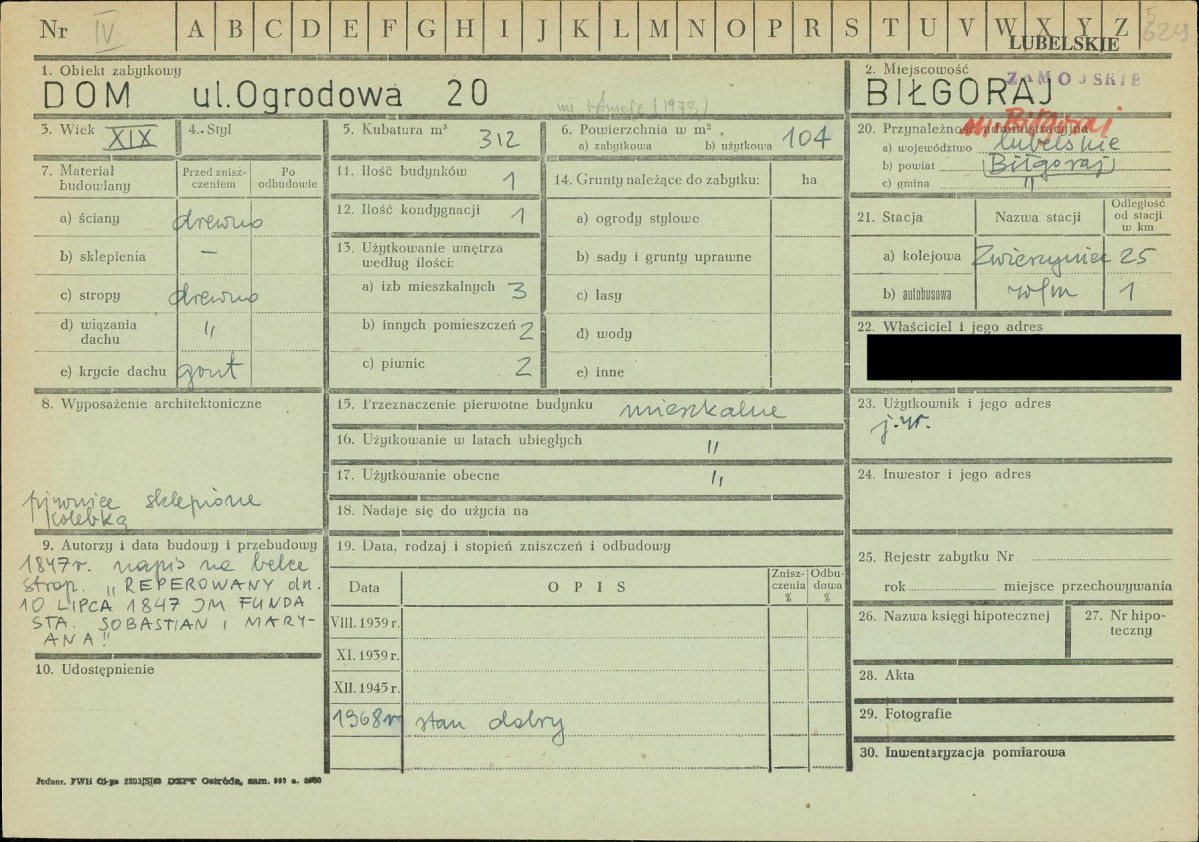 Nr IV A B C D E F G H I J K L M N O P R S T U V W X Y Z 5
629
LUBELSKIE
1. Obiekt zabytkowy
DOM ul. Ogrodowa 20
(1973)
2. Miejscowość
ZAMOJSKIE
BIŁGORAJ
m. Biłgoraj
3. Wiek XIX
4. Styl
5. Kubatura m³ 312
6. Powierzchnia w m²
a) zabytkowa b) użytkowa 104
7. Materiał budowlany
Przed zniszczeniem
Po odbudowie
a) ściany drewno
b) sklepienia —
c) stropy drewno
d) wiązania dachu "
e) krycie dachu gont
8. Wyposażenie architektoniczne
piwnice sklepione
kolebką
9. Autorzy i data budowy i przebudowy
1847r. napis na belce
strop. "REPEROWANY dn.
10 LIPCA 1847 JM FUNDA
STA. SOBASTIAN i MARY-
ANA"
10. Udostępnienie
11. Ilość budynków 1
12. Ilość kondygnacji 1
13. Użytkowanie wnętrza
według ilości:
a) izb mieszkalnych 3
b) innych pomieszczeń 2
c) piwnic 2
14. Grunty należące do zabytku: ha
a) ogrody stylowe
b) sady i grunty uprawne
c) lasy
d) wody
e) inne
15. Przeznaczenie pierwotne budynku mieszkalne
16. Użytkowanie w latach ubiegłych "
17. Użytkowanie obecne "
18. Nadaje się do użycia na
19. Data, rodzaj i stopień zniszczeń i odbudowy
Data OPIS Zniszczenia % Odbudowa %
VIII. 1939 r.
XI. 1939 r.
XII. 1945 r.
1968 r. stan dobry
20. Przynależność administracyjna
a) województwo lubelskie
b) powiat Biłgoraj
c) gmina "
21. Stacja Nazwa stacji Odległość od stacji w km
a) kolejowa Zwierzyniec 25
b) autobusowa w/m 1
22. Właściciel i jego adres
23. Użytkownik i jego adres
j.w.
24. Inwestor i jego adres
25. Rejestr zabytku Nr
rok miejsce przechowywania
26. Nazwa księgi hipotecznej
27. Nr hipoteczny
28. Akta
29. Fotografie
30. Inwentaryzacja pomiarowa